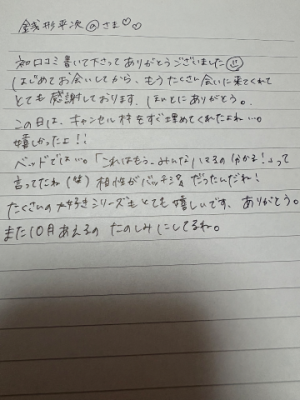 銭形平次のさま♡♡
初口コミ書いて下さってありがとうございました☺
はじめてお会いしてから、もうたくさん会いに来てくれて
とても感謝しております。ほんとにありがとう。
この日は、キャンセル枠をすぐ埋めてくれたよね…。
嬉しかったよ!!
ベッドでは…。「これはもう、みんな してるの分かる!」って
言ってたね(笑)相性がバッチシ だったんだね!
たくさんの大好きシリーズもとても嬉しいです、ありがとう。
また10月あえるの たのしみにしてるね。